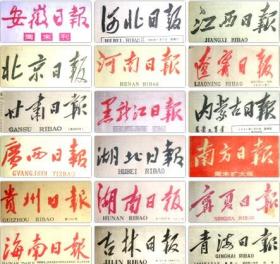 安徽日报
周末刊
河北日报
HEBEI RIBAO
江西日报
JIANGXI RIBAO
北京日报
河南日報
HENAN RIBAO
遼寧日報
LIAONING RIBAO
甘肃日报
GANSU RIBAO
黑龙江日報
内蒙古日报
廣西日報
GVANGJSIH YIZBAO
湖北日報
HUBEI RIBAO
南方日報
周末扩大版
贵州日報
GUIZHOU RIBAO
湖南日报
HUNAN RIBAO
宁夏日报
NINGXIA RIBAO
海南日报
吉林日报
JILIN RIBAO
青海日报
QINGHAI RIBAO